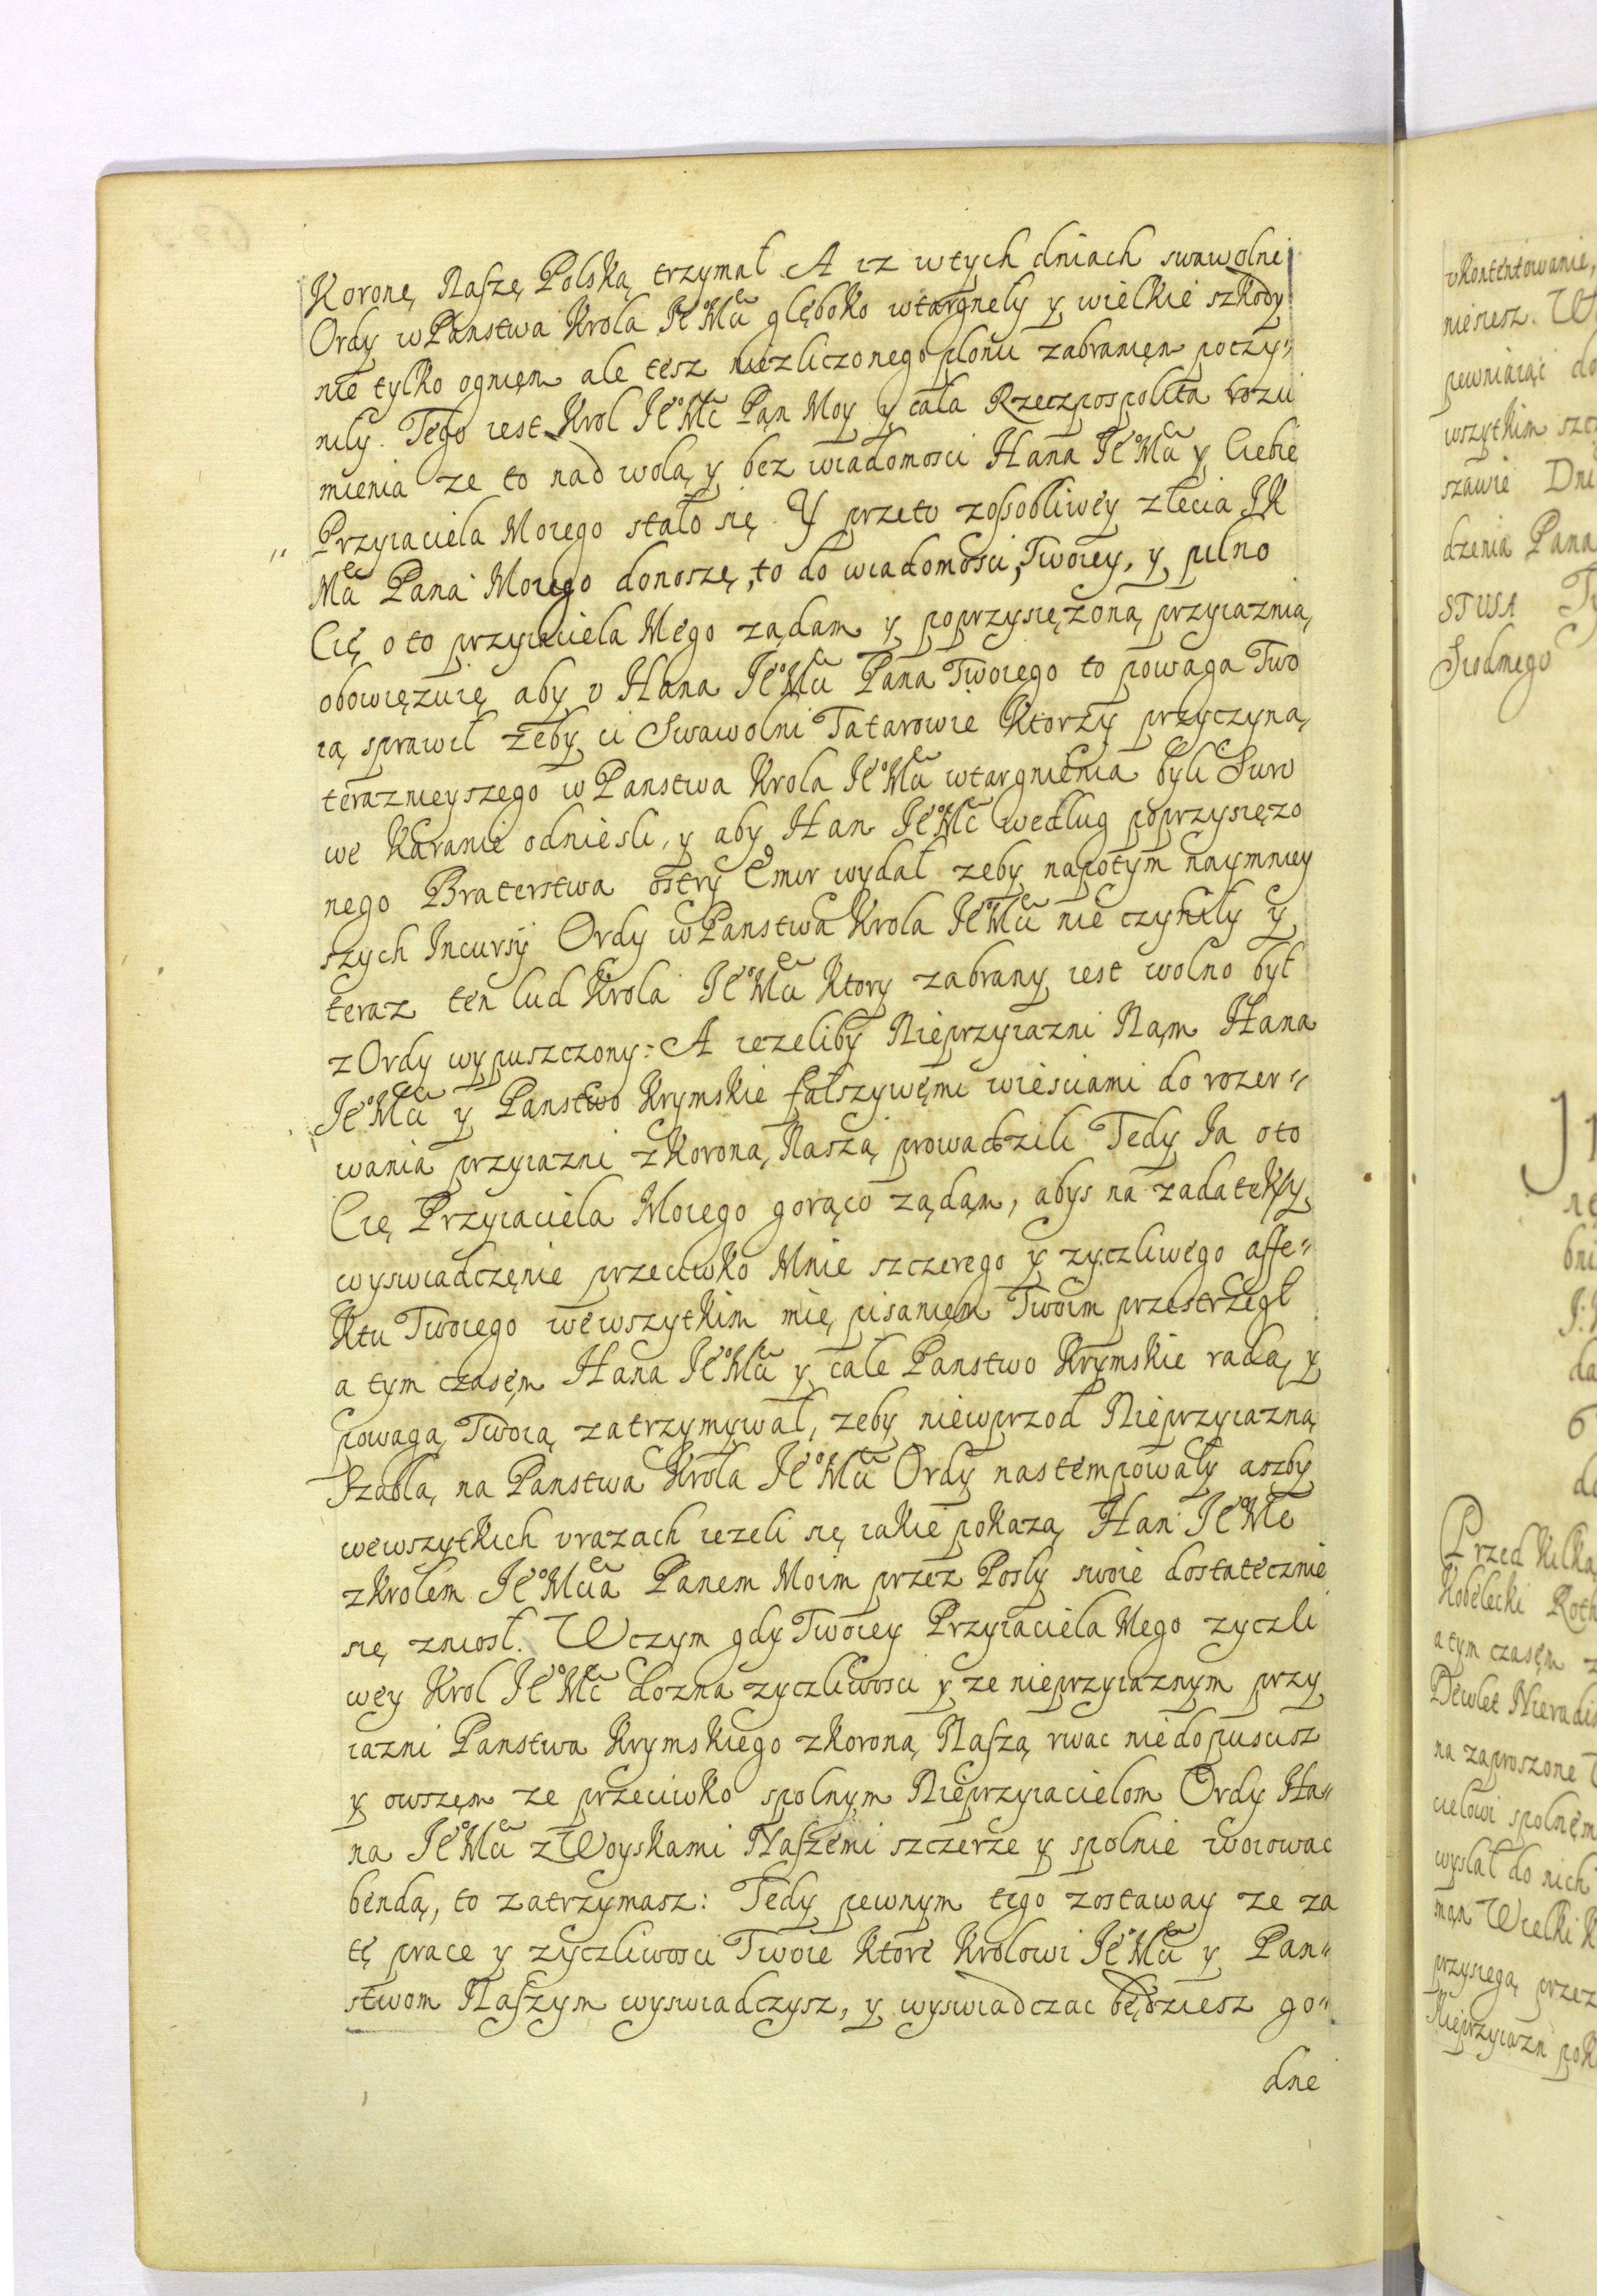 Koronę Naszę Polską trzymał A iz wtych dniach swawolne
Ordy w Panstwa Krola Je͛o Mći głęboko wtargnely y wielkie szkody
nie tylko ognięm ale tesz niezliczonego plonu zabranięm poczy"
nily. Tego iest Krol Je͛o Mć Pąn Moy y cała Rzeczpospolita rozu
mienia ze to nad wolą y bez wiadomosci Hana Je͛o Mći y Ciebie
Przyiaciela Moiego stało się. Y przeto zossobliwey zlecia JK
" Mći Pana Moiego donoszę to do wiadomosci Twoiey, y pilno
Cię o to przyiaciela Mego ządam y poprzysięzoną przyiaznią
obowięzuię aby v Hana Je͛o Mći Pana Twoiego to powaga Two
ią sprawił zeby ci Swawolni Tatarowie Ktorzy przyczyną
teraznieyszego w Panstwa Krola Je͛o Mći wtargnienia byli Suro
we Karanie odniesli, y aby Han Je͛o Mć według poprzysięzo
nego Braterstwa ostry Emir wydał zeby napotym naymniey
szych Incursij Ordy w Panstwa Krola Je͛o Mći nie czynily y
teraz ten lud Krola Je͛o Mći Ktory zabrany iest wolno był
z Ordy wypuszczony: A iezeliby Nieprzyiazni Nąm Hana
Je͛o Mći y Panstwo Krymskie fałszywęmi wiesciami do rozer"
wania przyiazni z Koroną Naszą prowadzili Tedy Ja oto
Cię Przyiaciela Moiego gorąco ządąm, abys na zadatek y
wyswiadczęnie przeciwko Mnie szczerego y zyczliwego affe"
ktu Twoiego wewszytkim mię pisanięm Twoim przestrzegł
a tym czasęm Hana Je͛o Mći y całe Panstwo Krymskie radą y
powagą Twoią zatrzymywał, zeby niewprzod Nieprzyiazną
Szablą na Panstwa Krola Je͛o Mći Ordy nastempowały aszby
wewszytkich vrazach iezeli się iakie pokazą Han Je͛o Mć
z Krolem Je͛o Mcią Panem Moim przez Posly swoie dostatecznie
się zniosł. W czym gdy Twoiey Przyiaciela Mego zyczli
węy Krol Je͛o Mć dozna zyczliwosci y ze nieprzyiaznym przy
iazni Panstwa Krymskiego z Koroną Naszą rwac niedopuscisz
y owszęm ze przeciwko spolnym Nieprzyiacielom Ordy Ha"
na Je͛o Mći z Woyskami Naszemi szczerze y spolnie woiowac
bendą, to zatrzymasz: Tedy pewnym tego zostaway ze za
tę prace y zyczliwosci Twoie Ktore Krolowi Je͛o Mći y Pan"
stwom Naszym wyswiadczysz, y wyswiadczac będziesz go"
dne
vkontentowanie,
niesiesz. W
pewniaiąc do
wszytkim szcz
szawie Dni
dzenia Pana
STUSA
Siodmego
Przed kilką
Kobelecki Rotm
a tym czasęm z
Dewlet Nieradi
na zaproszone
cielowi spolnęm
wysłał do nich
mąn Wielki K
przysięgą przez
Nieprzyiazn pok